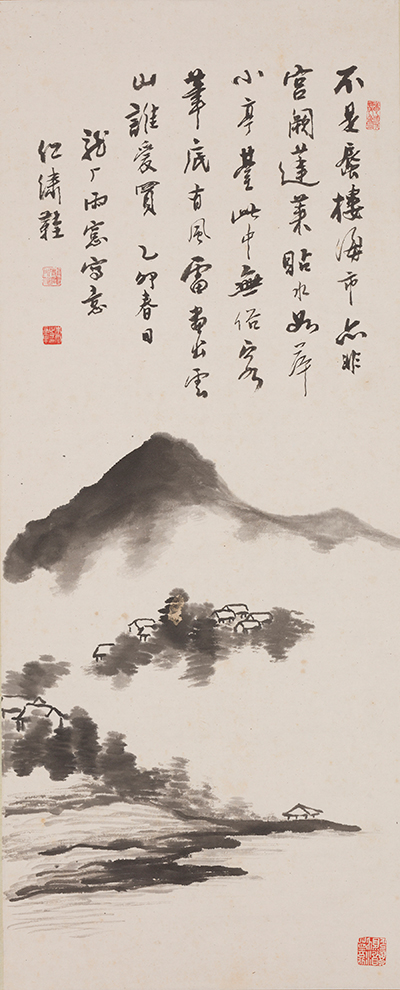 不是蜃樓海市亦非
宮闕蓬萊貼水如萍
小亭臺此中無俗客
筆底有風雷畫出雲
山誰愛買 乙卯春日
龍厂雨窗寫意
仁